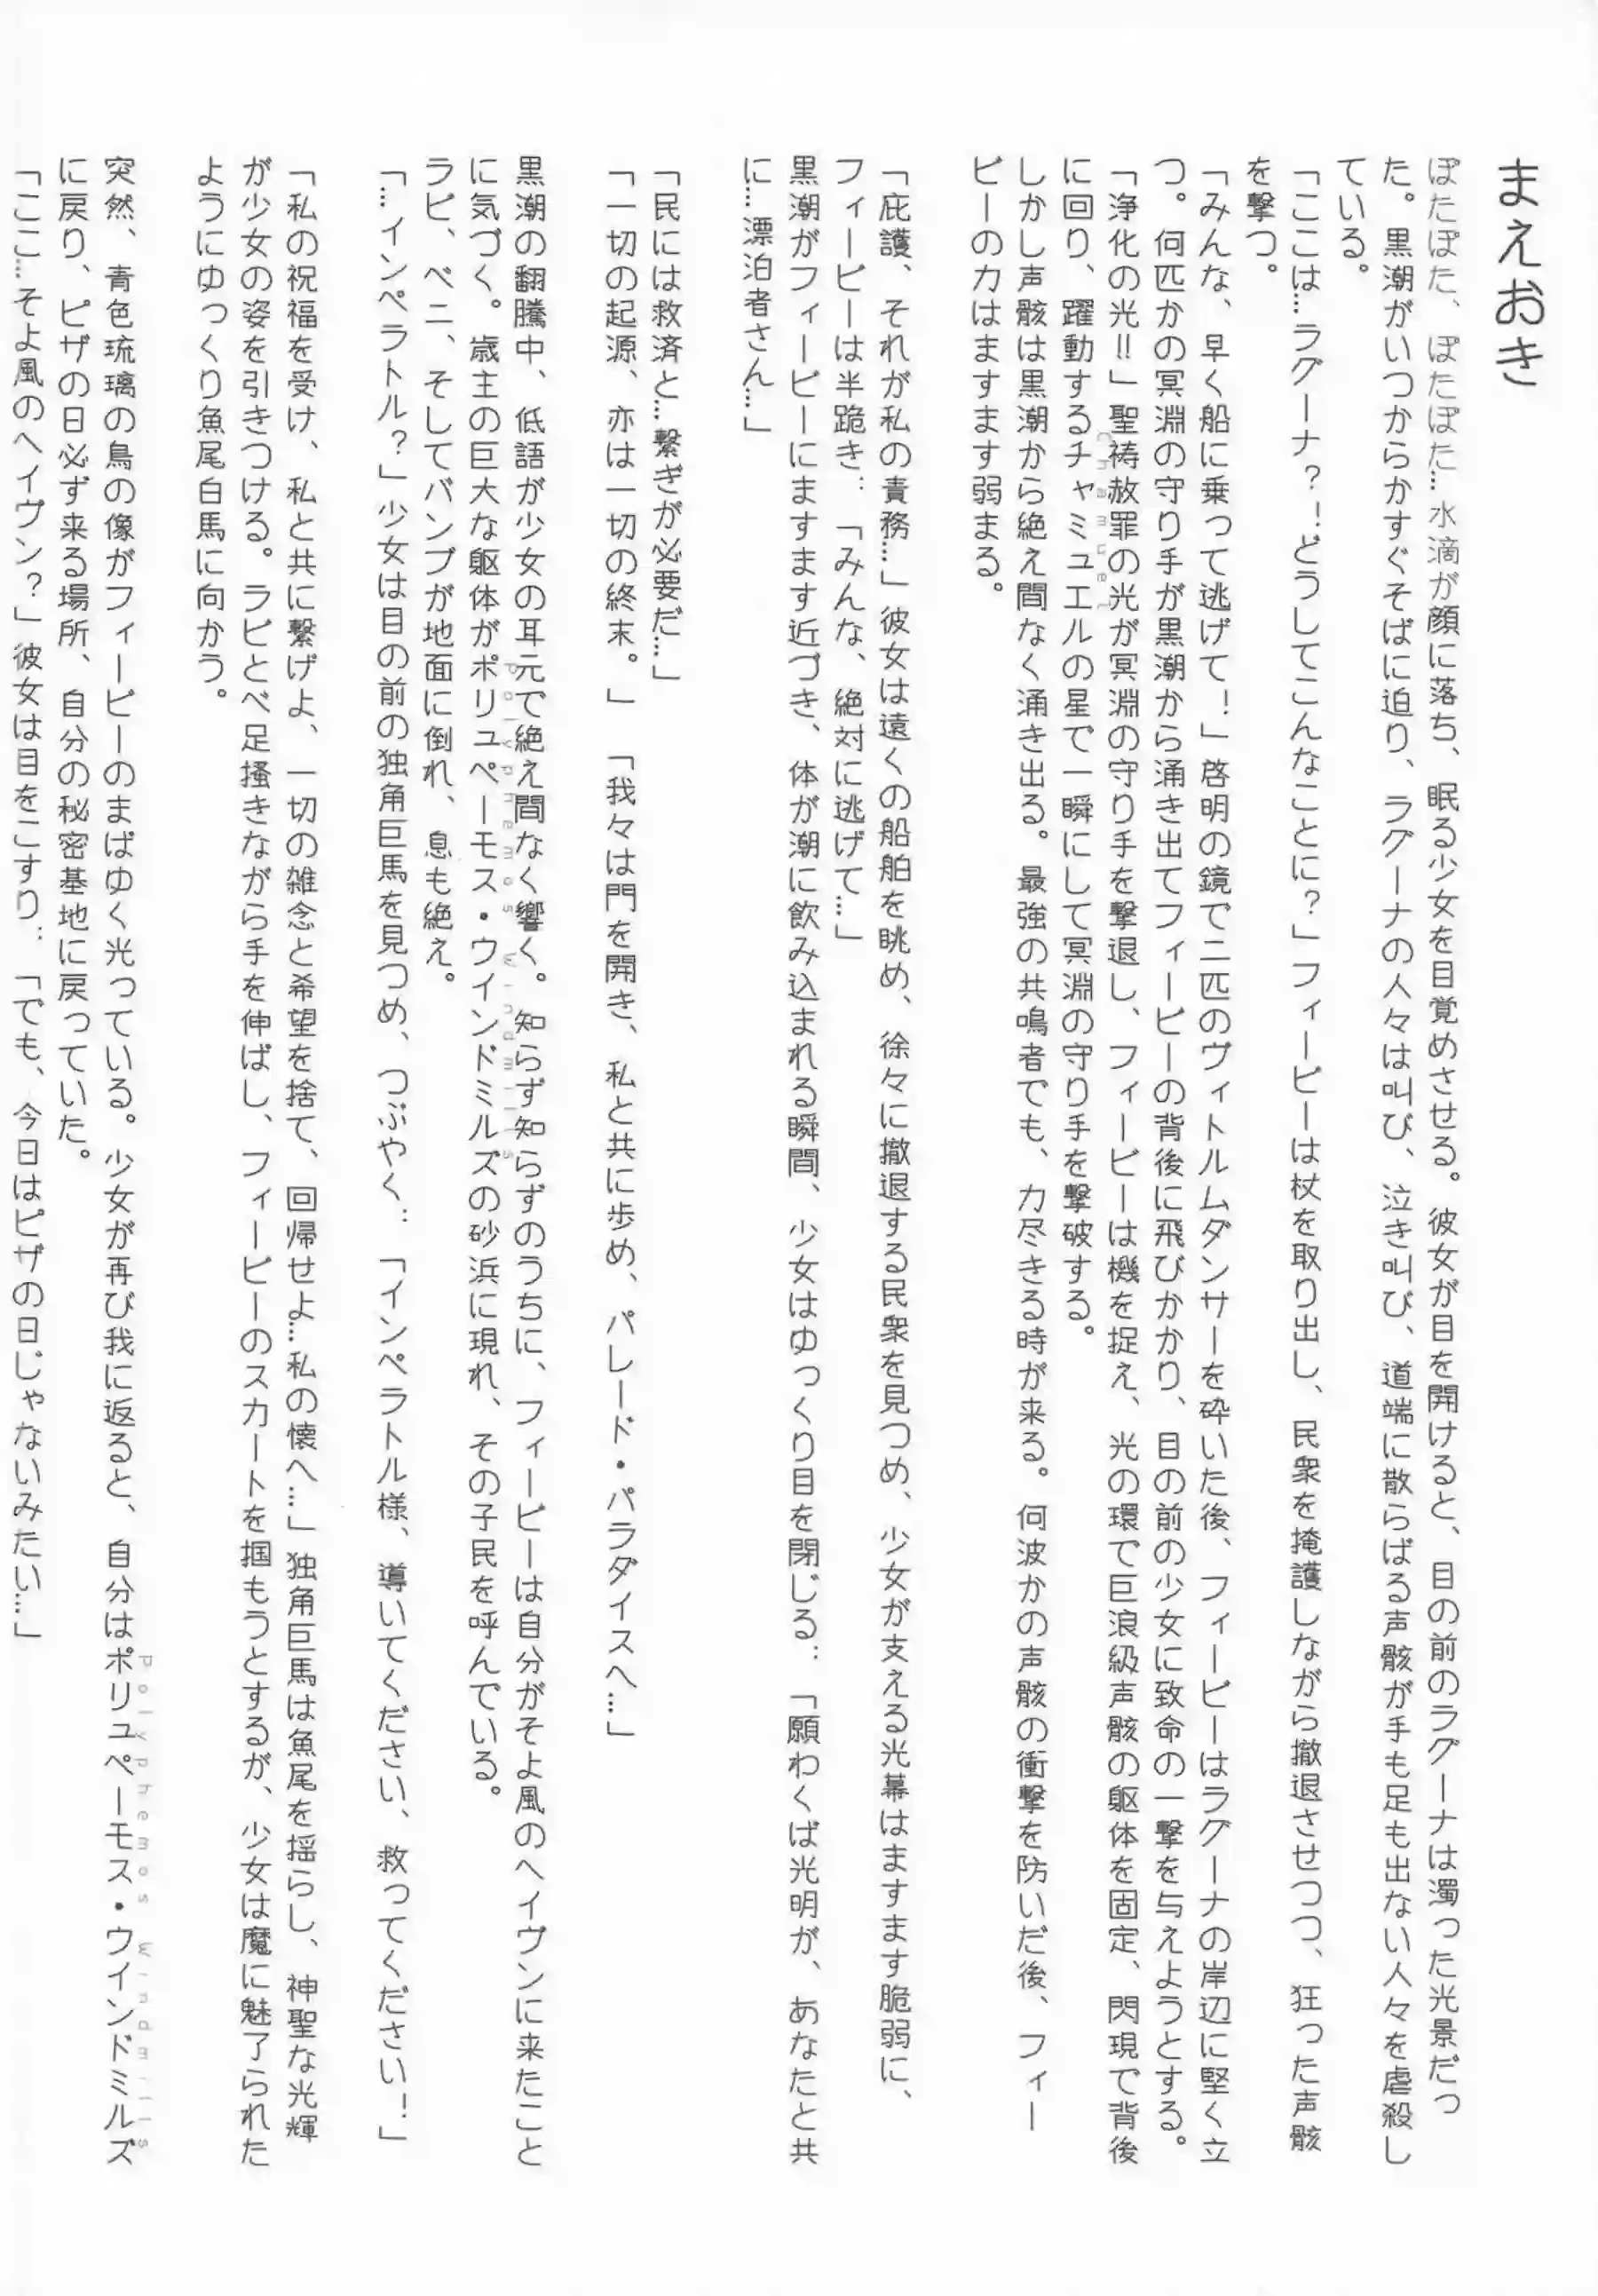 まえおき
ぽたぽた、ぽたぽた…水滴が顔に落ち、眠る少女を目覚めさせる。彼女が目を開けると、目の前のラグーナは濁った光景だっ
た。黒潮がいつからかすぐそばに迫り、ラグーナの人々は叫び、泣き叫び、道端に散らばる声骸が手も足も出ない人々を虐殺し
ている。
「ここは…ラグーナ?!どうしてこんなことに?」フィービーは杖を取り出し、民衆を掩護しながら撤退させつつ、狂った声骸
を撃つ。
「みんな、早く船に乗って逃げて!」啓明の鏡で二匹のヴィトルムダンサーを砕いた後、フィービーはラグーナの岸辺に堅く立
つ。何匹かの冥淵の守り手が黒潮から涌き出てフィービーの背後に飛びかかり、目の前の少女に致命の一撃を与えようとする。
「浄化の光!!」聖祷赦罪の光が冥淵の守り手を撃退し、フィービーは機を捉え、光の環で巨浪級声骸の躯体を固定、閃現で背後
に回り、躍動するチャミュエルの星で一瞬にして冥淵の守り手を撃破する。
Chamuel
しかし声骸は黒潮から絶え間なく涌き出る。最強の共鳴者でも、力尽きる時が来る。何波かの声骸の衝撃を防いだ後、フィー
ビーの力はますます弱まる。
「庇護、それが私の責務…」彼女は遠くの船舶を眺め、徐々に撤退する民衆を見つめ、少女が支える光幕はますます脆弱に、
フィービーは半跪き:「みんな、絶対に逃げて…」
黒潮がフィービーにますます近づき、体が潮に飲み込まれる瞬間、少女はゆっくり目を閉じる:「願わくば光明が、あなたと共
に…漂泊者さん…」
「民には救済と…繋ぎが必要だ…」
「一切の起源、亦は一切の終末。」「我々は門を開き、私と共に歩め、パレード・パラダイスへ…」
黒潮の翻騰中、低語が少女の耳元で絶え間なく響く。知らず知らずのうちに、フィービーは自分がそよ風のヘイヴンに来たこと
に気づく。歳主の巨大な躯体がポリュペーモス・ウインドミルズの砂浜に現れ、その子民を呼んでいる。
Polyphemos Windmills
ラビ、ベニ、そしてバンブが地面に倒れ、息も絶え。
「…インペラトル?」少女は目の前の独角巨馬を見つめ、つぶやく:「インペラトル様、導いてください、救ってください!」
「私の祝福を受け、私と共に繋げよ、一切の雑念と希望を捨て、回帰せよ…私の懐へ…」独角巨馬は魚尾を揺らし、神聖な光輝
が少女の姿を引きつける。ラビとベ足掻きながら手を伸ばし、フィービーのスカートを掴もうとするが、少女は魔に魅了られた
ようにゆっくり魚尾白馬に向かう。
突然、青色琉璃の鳥の像がフィービーのまばゆく光っている。少女が再び我に返ると、自分はポリュペーモス・ウインドミルズ
Polyphemos Windmills
に戻り、ピザの日必ず来る場所、自分の秘密基地に戻っていた。
「ここ…そよ風のヘイヴン?」彼女は目をこすり:「でも、今日はピザの日じゃないみたい…」